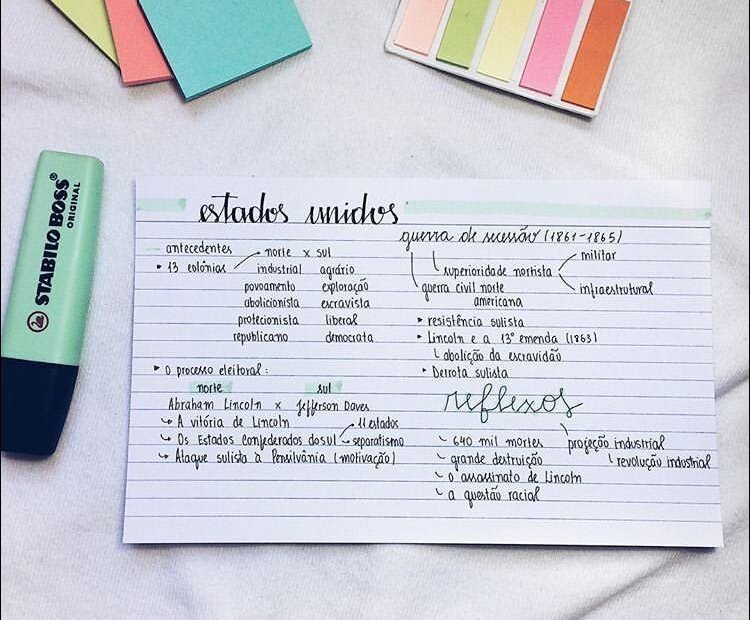 STABILO BOSS®
ORIGINAL
estados unidos
antecedentes
• 13 colônias
norte x sul
industrial agrário
povoamento exploração
abolicionista escravista
protecionista liberal
republicano democrata
• o processo eleitoral:
norte sul
Abraham Lincoln x Jefferson Daves
↳ A vitória de Lincoln
↳ Os Estados confederados do sul
11 estados
separatismo
↳ Ataque sulista à Pensilvânia (motivação)
guerra de secessão (1861-1865)
superioridade nortista
militar
infraestrutural
guerra civil norte
americana
• resistência sulista
• Lincoln e a 13º emenda (1863)
↳ abolição da escravidão
• Derrota sulista
reflexos
↳ 640 mil mortes
↳ grande destruição
↳ o assassinato de Lincoln
↳ a questão racial
projeção industrial
↳ revolução industrial